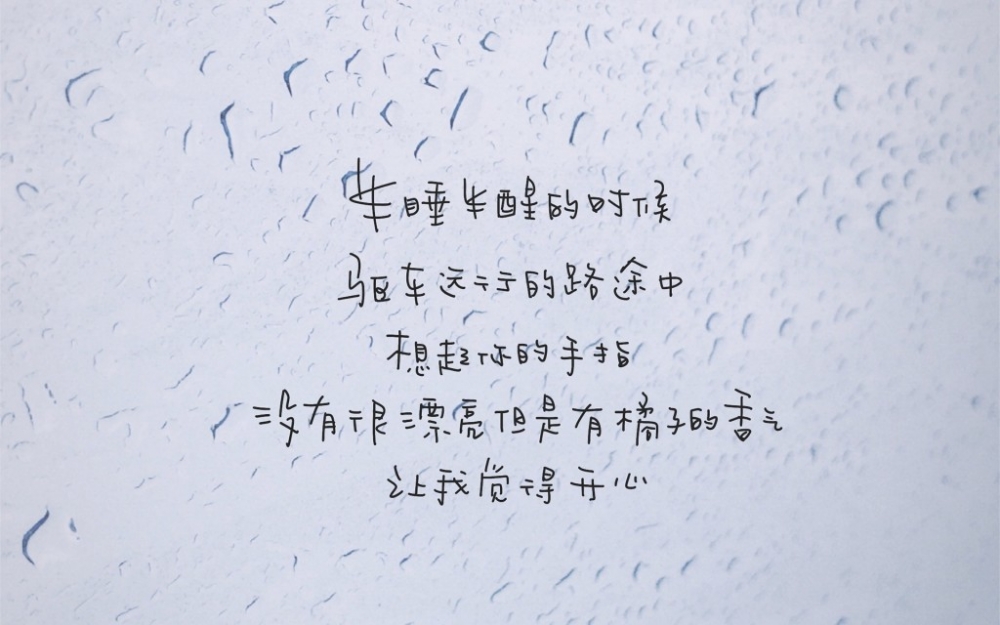 半睡半醒的时候
驱车远行的路途中
想起你的手指
没有很漂亮但是有橘子的香气
让我觉得开心